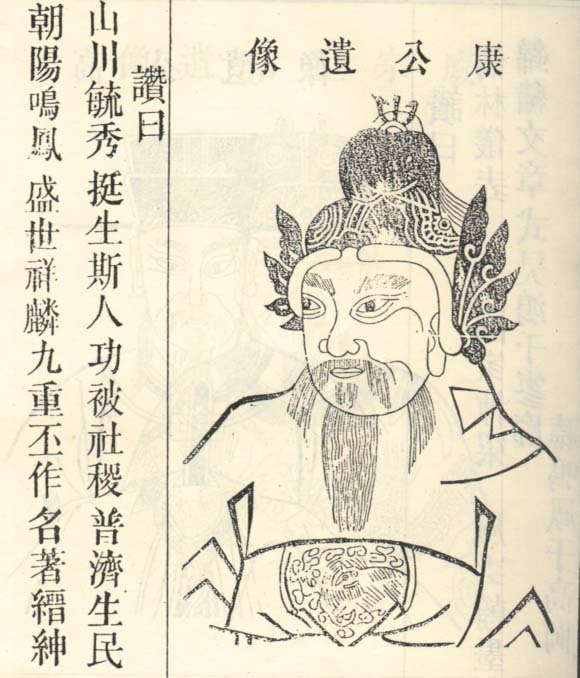 康公遺像
讚曰
山川毓秀挺生斯人功被社稷普濟生民
朝陽鳴鳳盛世祥麟九重丕作名著縉紳